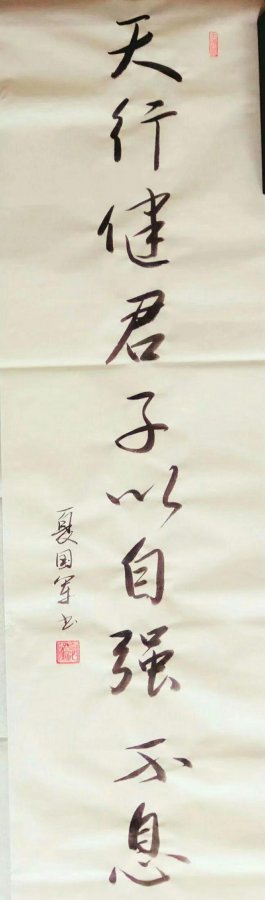 天行健君子以自强不息
夏国军书